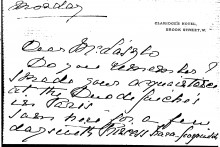 Monday
CLARIDGE'S HOTEL,
BROOK STREET, W.
Dear Mr László
Do you remember I
made your acquaintance
at the Duc de Guiche's
in Paris
I am here for a few
days with Princess